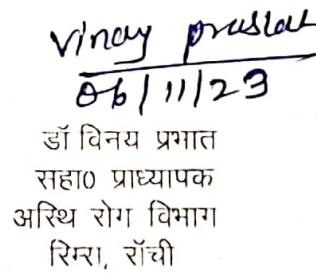 Vinay Prabhat
06/11/23
डॉ विनय प्रभात
सहा0 प्राध्यापक
अस्थि रोग विभाग
रिम्स, रॉंची